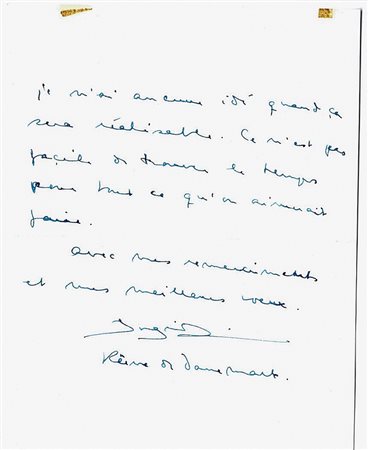 je n'ai aucune idé quand ça
sera réalisable. Ce n'est pas
facile de trouver le temps
pour tout ce qu'on aimerait
faire.
avec mes remerciments
et mes meilleurs voeux.
Ingrid
Reine de Danemark.